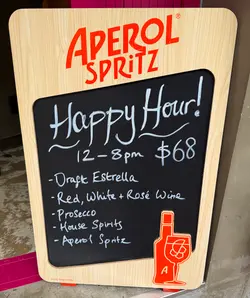 APEROL
SPRiTZ
Happy Hour!
12-8pm $68
- Draft Estrella
- Red, White + Rosé Wine
- Prosecco
- House Spirits
- Aperol Spritz
A